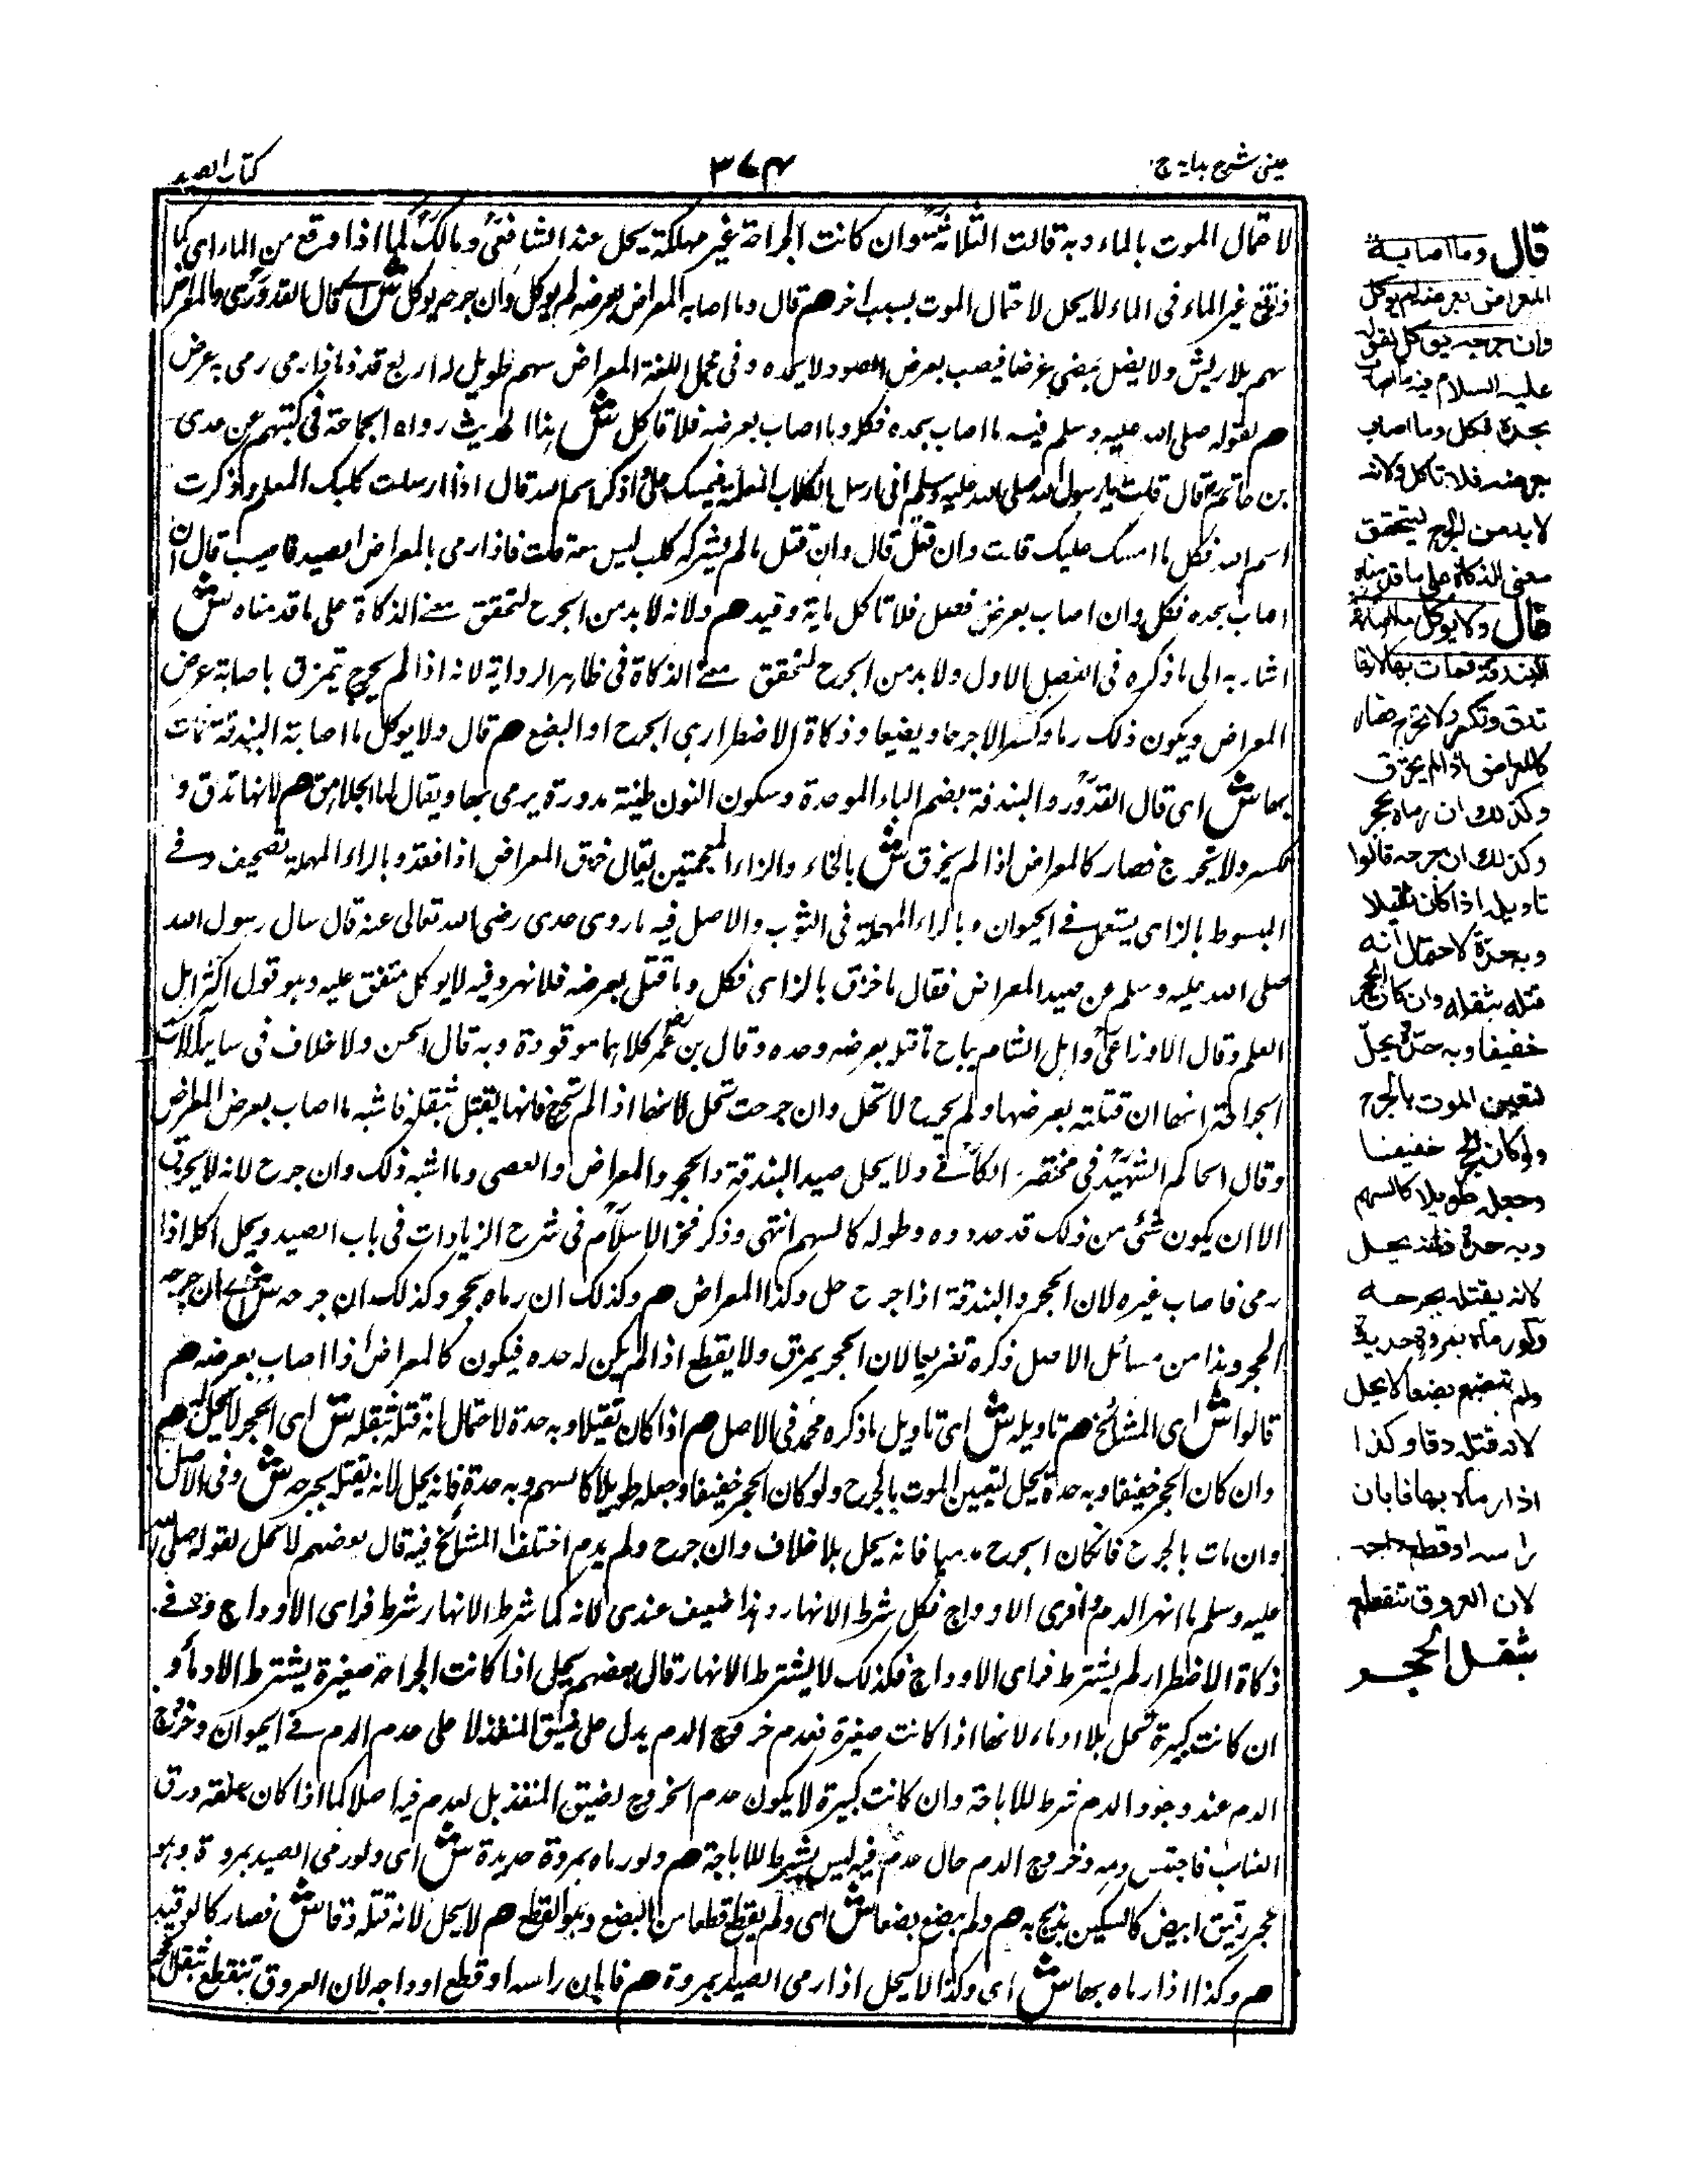 عینی شرح ہدایہ ج
٣٧٤
کتاب الصید
لاحتمال الموت بالماء وبہ قالت الثلاثۃ وان کانت الجراحۃ غیر مہلکۃ یحل عند الشافعی ومالک کما اذا وقع من الماء ای کما
وقع غیر الماء فی الماء لا یحل لاحتمال الموت بسبب اخر ھم قال وما اصابہ المعراض بعرضہ لم یوکل وان جرحہ یوکل ش ای قال القدوری والمعراض
سہم بلا ریش ولا یصل یمضی عرضا فیصیب بعرض العود لا بحدہ وفی مجمل اللغۃ المعراض سہم طویل لہ اربع قذذ فاذا رمی رمی بہ عرض
ھم لقولہ صلی اللہ علیہ وسلم فیہ ما اصاب بحدہ فکل وما اصاب بعرضہ فلا تاکل ش ہذا الحدیث رواہ الجماعۃ فی کتبہم عن عدی
بن حاتم قال قلت یا رسول اللہ صلی اللہ علیہ وسلم انی ارسل الکلاب المعلمۃ فیمسک علی واذکر اسم اللہ قال اذا ارسلت کلبک المعلم وذکرت
اسم اللہ فکل ما امسک علیک قلت وان قتل قال وان قتل ما لم یشرکہ کلب لیس معہ قلت فاذا رمی بالمعراض الصید فاصیب قال ان
اصاب بحدہ فکل وان اصاب بعرض فقتل فلا تاکل فانہ وقیذ ھم ولانہ لا بد من الجرح لتحقق معنے الذکاۃ علی ما قدمناہ ش
اشار بہ الی ما ذکرہ فی الفصل الاول ولا بد من الجرح لتحقق معنے الذکاۃ فی ظاہر الروایۃ لانہ اذا لم یجرح تمزق باصابۃ عرض
المعراض ویکون ذلک رضا وکسرا لا جرحا وبضعا وذکاۃ الاضطراری الجرح او البضع ھم قال ولا یوکل ما اصابۃ البندقۃ فمات
بہا ش ای قال القدوری والبندقۃ بضم الباء الموحدۃ وسکون النون طینۃ مدورۃ یرمی بہا ویقال لہا الجلاہق ھم لانہا تدق و
تکسر ولا تجرح فصار کالمعراض اذا لم یخزق ش بالخاء والزاء المعجمتین یقال خزق المعراض اذا نفذ وبالراء المہملۃ تصحیف وفے
المبسوط بالزای یستعمل فے الحیوان وبالراء المہملۃ فی الثوب والاصل فیہ ما روی عدی رضی اللہ تعالی عنہ قال سال رسول اللہ
صلی اللہ علیہ وسلم عن صید المعراض فقال ما خزق بالزای فکل وما قتل بعرضہ فلا نہر وفیہ لا یوکل متفق علیہ وہو قول اکثر اہل
العلم وقال الاوزاعی واہل الشام یباح ما قتلہ بعرضہ وحدہ وقال بن عمر کلاہما موقوذۃ وبہ قال الحسن ولا خلاف فی سایر آلات
الجراحۃ انہا ان قتلتہ بعرضہا ولم یجرح لا تحل وان جرحت تحل لانہا اذا لم تجرح فانہا یقتل بثقلہ فاشبہ ما اصاب بعرض المعراض
وقال الحاکم الشہید فی مختصر الکافے ولا یحل صید البندقۃ والحجر والمعراض والعصی وما اشبہ ذلک وان جرح لانہ لا یخرق
الا ان یکون شئی من ذلک قد حددہ وطولہ کالسہم انتہی وذکر فخر الاسلام فی شرح الزیادات فی باب الصید ویحل اکلہ اذا
رمی فاصاب غیرہ لان الحجر والبندقۃ اذا جرح حل وکذا المعراض ھم وکذلک ان رماہ بحجر وکذلک ان جرحہ ش ای ان جرحہ
الحجر وہذا من مسائل الاصل ذکرہ تفریعا لان الحجر یمزق ولا یقطع اذا لم یکن لہ حدہ فیکون کالمعراض اذا اصاب بعرضہ ھم
قالوا ش ای المشائخ ھم تاویلہ ش ای تاویل ما ذکرہ محمد فی الاصل ھم اذا کان ثقیلا وبہ حدۃ لاحتمال انہ قتلہ بثقلہ ش ای الحجر لا یحل ھم
وان کان الحجر خفیفا وبہ حدۃ یحل لتعیین الموت بالجرح ولو کان الحجر خفیفا وجعلہ طویلا کالسہم وبہ حدۃ فانہ یحل لانہ یقتلہ بجرحہ ش وفی الاصل
وان مات بالجرح فان کان الجرح مدمیا فانہ یحل بلا خلاف وان جرح ولم یدم اختلف المشائخ فیہ قال بعضہم لا تحل لقولہ صلی اللہ
علیہ وسلم ما انہر الدم وافری الاوداج فکل شرط الانہار وہذا ضعیف عندی لانہ کما شرط الانہار شرط فرای الاوداج وفے
ذکاۃ الاضطرار لم یشترط فرای الاوداج فکذلک لا یشترط الانہار قال بعضہم یحل اذا کانت الجراحۃ صغیرۃ یشترط الادماء و
ان کانت کبیرۃ تحل بلا ادماء لانہا اذا کانت صغیرۃ فعدم خروج الدم یدل علی ضیق المنفذ لا علی عدم الدم فے الحیوان وخروج
الدم عند وجود الدم شرط للاباحۃ وان کانت کبیرۃ لا یکون عدم الخروج لضیق المنفذ بل لعدم فیہ اصلا کما اذا کان علفہ ورق
العناب فاحتبس دمہ وخروج الدم حال عدم فیہ لیس بشرط للاباحۃ ھم ولو رماہ بمروۃ حدیدۃ ش ای ولو رمی الصید بمروۃ وہو
حجر رقیق ابیض کالسکین یذبح بہ ھم ولم یبضع بضعا ش ای ولم یقطع قطعا من البضع وہو القطع ھم لا یحل لانہ قتلہ دقا ش فصار کالوقیذ
ھم وکذا اذا رماہ بہا ش ای وکذا لا یحل اذا رمی الصید بمروۃ ھم فابان راسہ او قطع اوداجہ لان العروق تنقطع بثقل الحجر
قال وما اصابہ
المعراض بعرضہ لم یوکل
وان جرحہ یوکل لقولہ
علیہ السلام فیہ ما اصاب
بحدہ فکل وما اصاب
بعرضہ فلا تاکل ولانہ
لابد من الجرح لیتحقق
معنی الذکاۃ علی ما قدمناہ
قال ولا یوکل ما اصابتہ
البندقۃ فمات بہا لانہا
تدق وتکسر ولا تجرح فصار
کالمعراض اذا لم یخزق
وکذلک ان رماہ بحجر
وکذلک ان جرحہ قالوا
تاویلہ اذا کان ثقیلا
وبہ حدۃ لاحتمال انہ
قتلہ بثقلہ وان کان الحجر
خفیفا وبہ حدۃ یحل
لتعین الموت بالجرح
ولو کان الحجر خفیفا
وجعلہ طویلا کالسہم
وبہ حدۃ فانہ یحل
لانہ یقتلہ بجرحہ
ولو رماہ بمروۃ حدیدۃ
ولم تبضع بضعا لا یحل
لانہ قتلہ دقا وکذا
اذا رماہ بہا فابان
راسہ او قطع اوداجہ
لان العروق تنقطع
بثقل الحجر